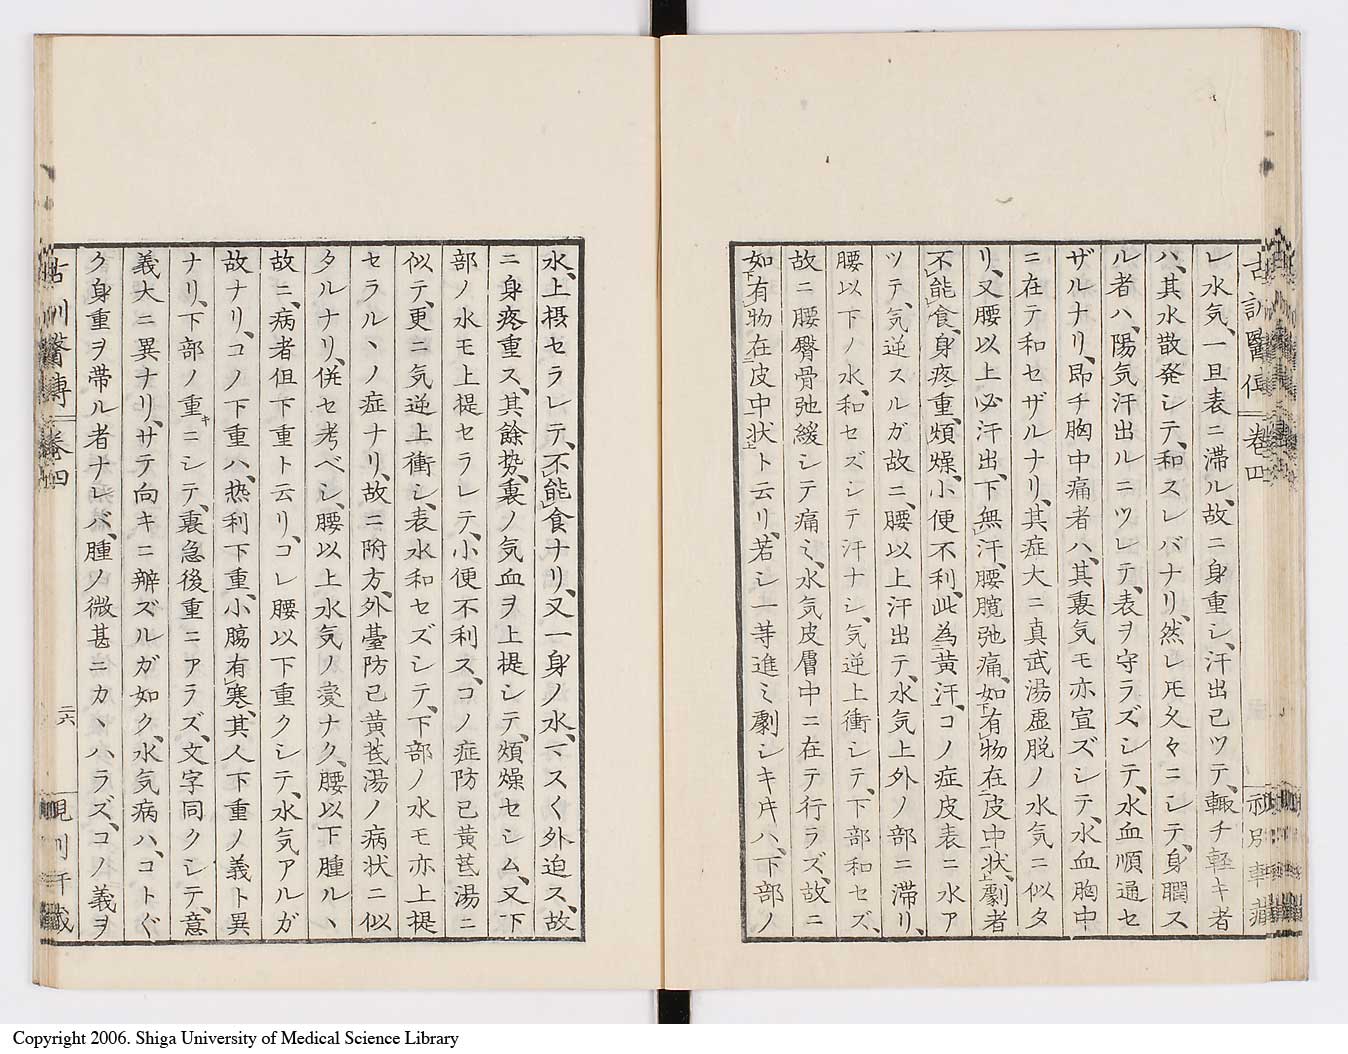 レ水気、一旦表ニ滞ル、故ニ身重シ、汗出已ツテ、輙チ軽キ者
ハ、其水散発シテ、和スレバナリ、然レ𪜈久々ニシテ、身瞤ス
ル者ハ、陽気汗出ルニツレテ、表ヲ守ラズシテ、水血順通セ
ザルナリ、即チ胸中痛者ハ、其裏気モ亦宣ズシテ、水血胸中
ニ在テ和セザルナリ、其症大ニ真武湯虚脱ノ水気ニ似タ
リ、又腰以上必汗出、下無汗、腰髖弛痛、如下有物在二皮中状上、劇者
不能食、身疼重、煩燥、小便不利、此為黄汗、コノ症皮表ニ水ア
ツテ、気逆スルガ故ニ、腰以上汗出テ、水気上外ノ部ニ滞リ、
腰以下ノ水、和セズシテ汗ナシ、気逆上衝シテ、下部和セズ、
故ニ腰臀骨弛緩シテ痛ミ、水気皮膚中ニ在テ行ラズ、故ニ
如下有物在二皮中状上ト云リ、若シ一等進ミ劇シキ𪜈ハ、下部ノ
古訓醫傳 巻四
水、上摂セラレテ、不能食ナリ、又一身ノ水、マスく外迫ス、故
ニ身疼重ス、其餘勢、裏ノ気血ヲ上提シテ、煩燥セシム、又下
部ノ水モ上提セラレテ、小便不利ス、コノ症防己黄芪湯ニ
似テ、更ニ気逆上衝シ、表水和セズシテ、下部ノ水モ亦上提
セラルヽノ症ナリ、故ニ附方、外臺防已黄芪湯ノ病状ニ似
タルナリ、併セ考ベシ、腰以上水気ノ変ナク、腰以下腫ルヽ
故ニ、病者但下重ト云リ、コレ腰以下重クシテ、水気アルガ
故ナリ、コノ下重ハ、热利下重、小腸有寒、其人下重ノ義ト異
ナリ、下部ノ重キニシテ、裏急後重ニアラズ、文字同クシテ、意
義大ニ異ナリ、サテ向キニ辨ズルガ如ク、水気病ハ、コトぐ
ク身重ヲ帯ル者ナレバ、腫ノ微甚ニカヽハラズ、コノ義ヲ
古訓醫傳 巻四 二六
Copyright 2006. Shiga University of Medical Science Library